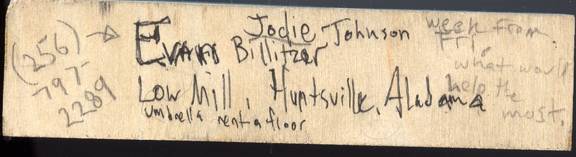 (256) →
797-
2289
Jodie Johnson
Evans Billitzer
Low Mill, Huntsville, Alabama
umbrella rent a floor
week from
Fri.
what would
help the
most.